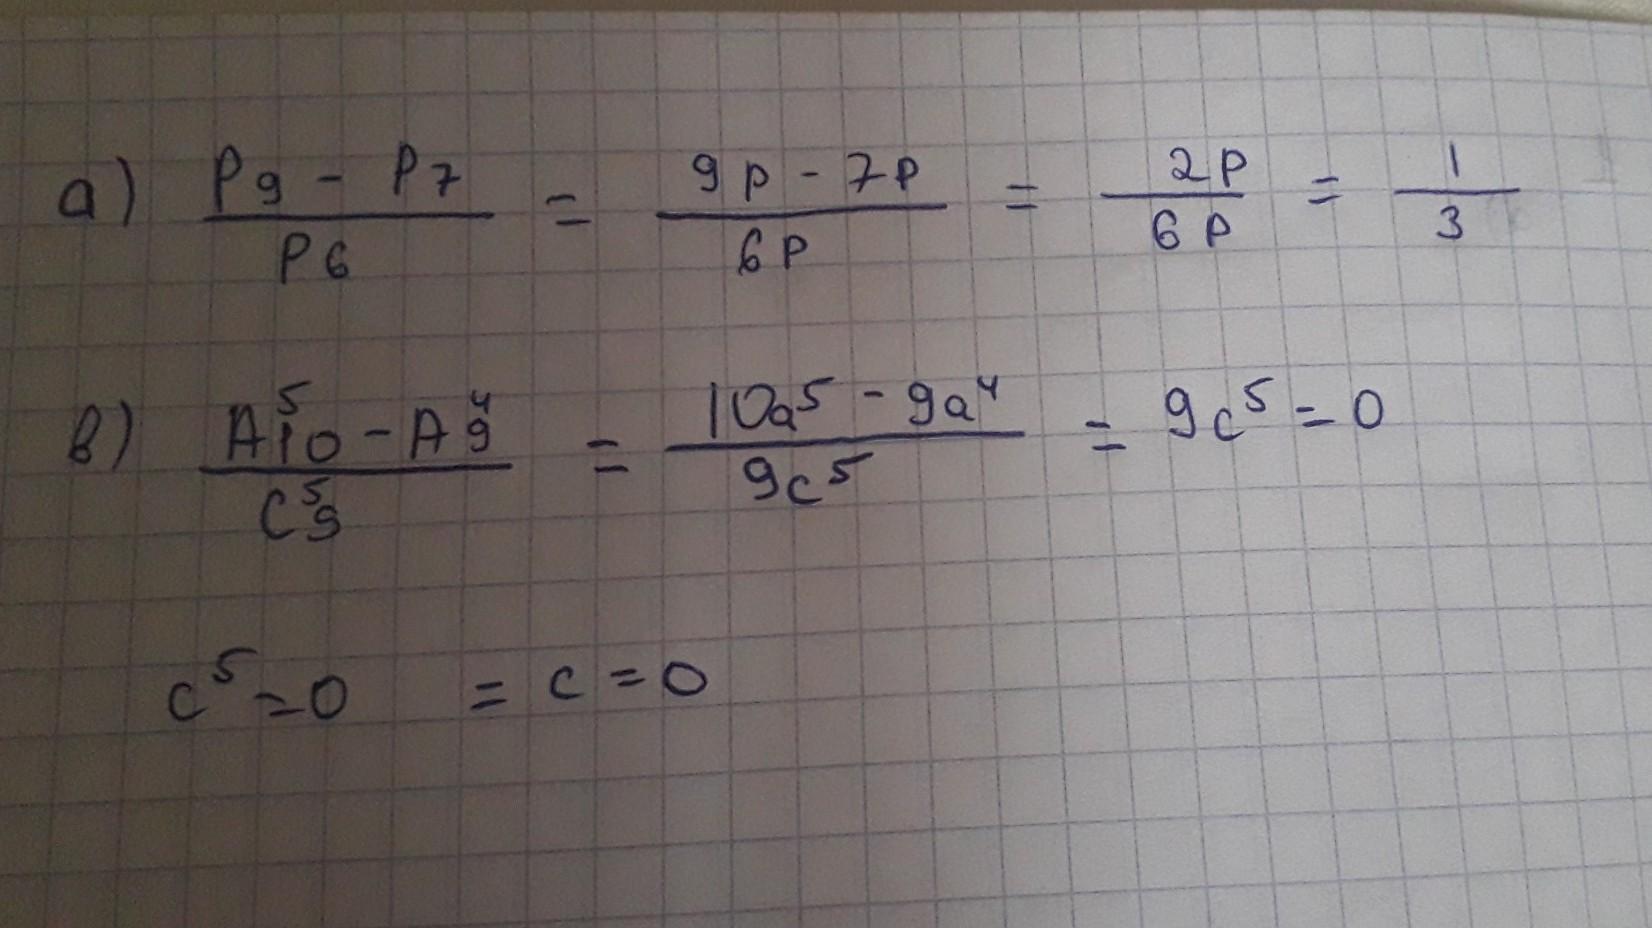 а) P₉ - P₇ / P₆ = 9p - 7p / 6p = 2p / 6p = 1 / 3
в) A⁵₁₀ - A⁴₉ / C⁵₉ = 10a⁵ - 9a⁴ / 9c⁵ = 9c⁵ = 0
c⁵ = 0 = c = 0